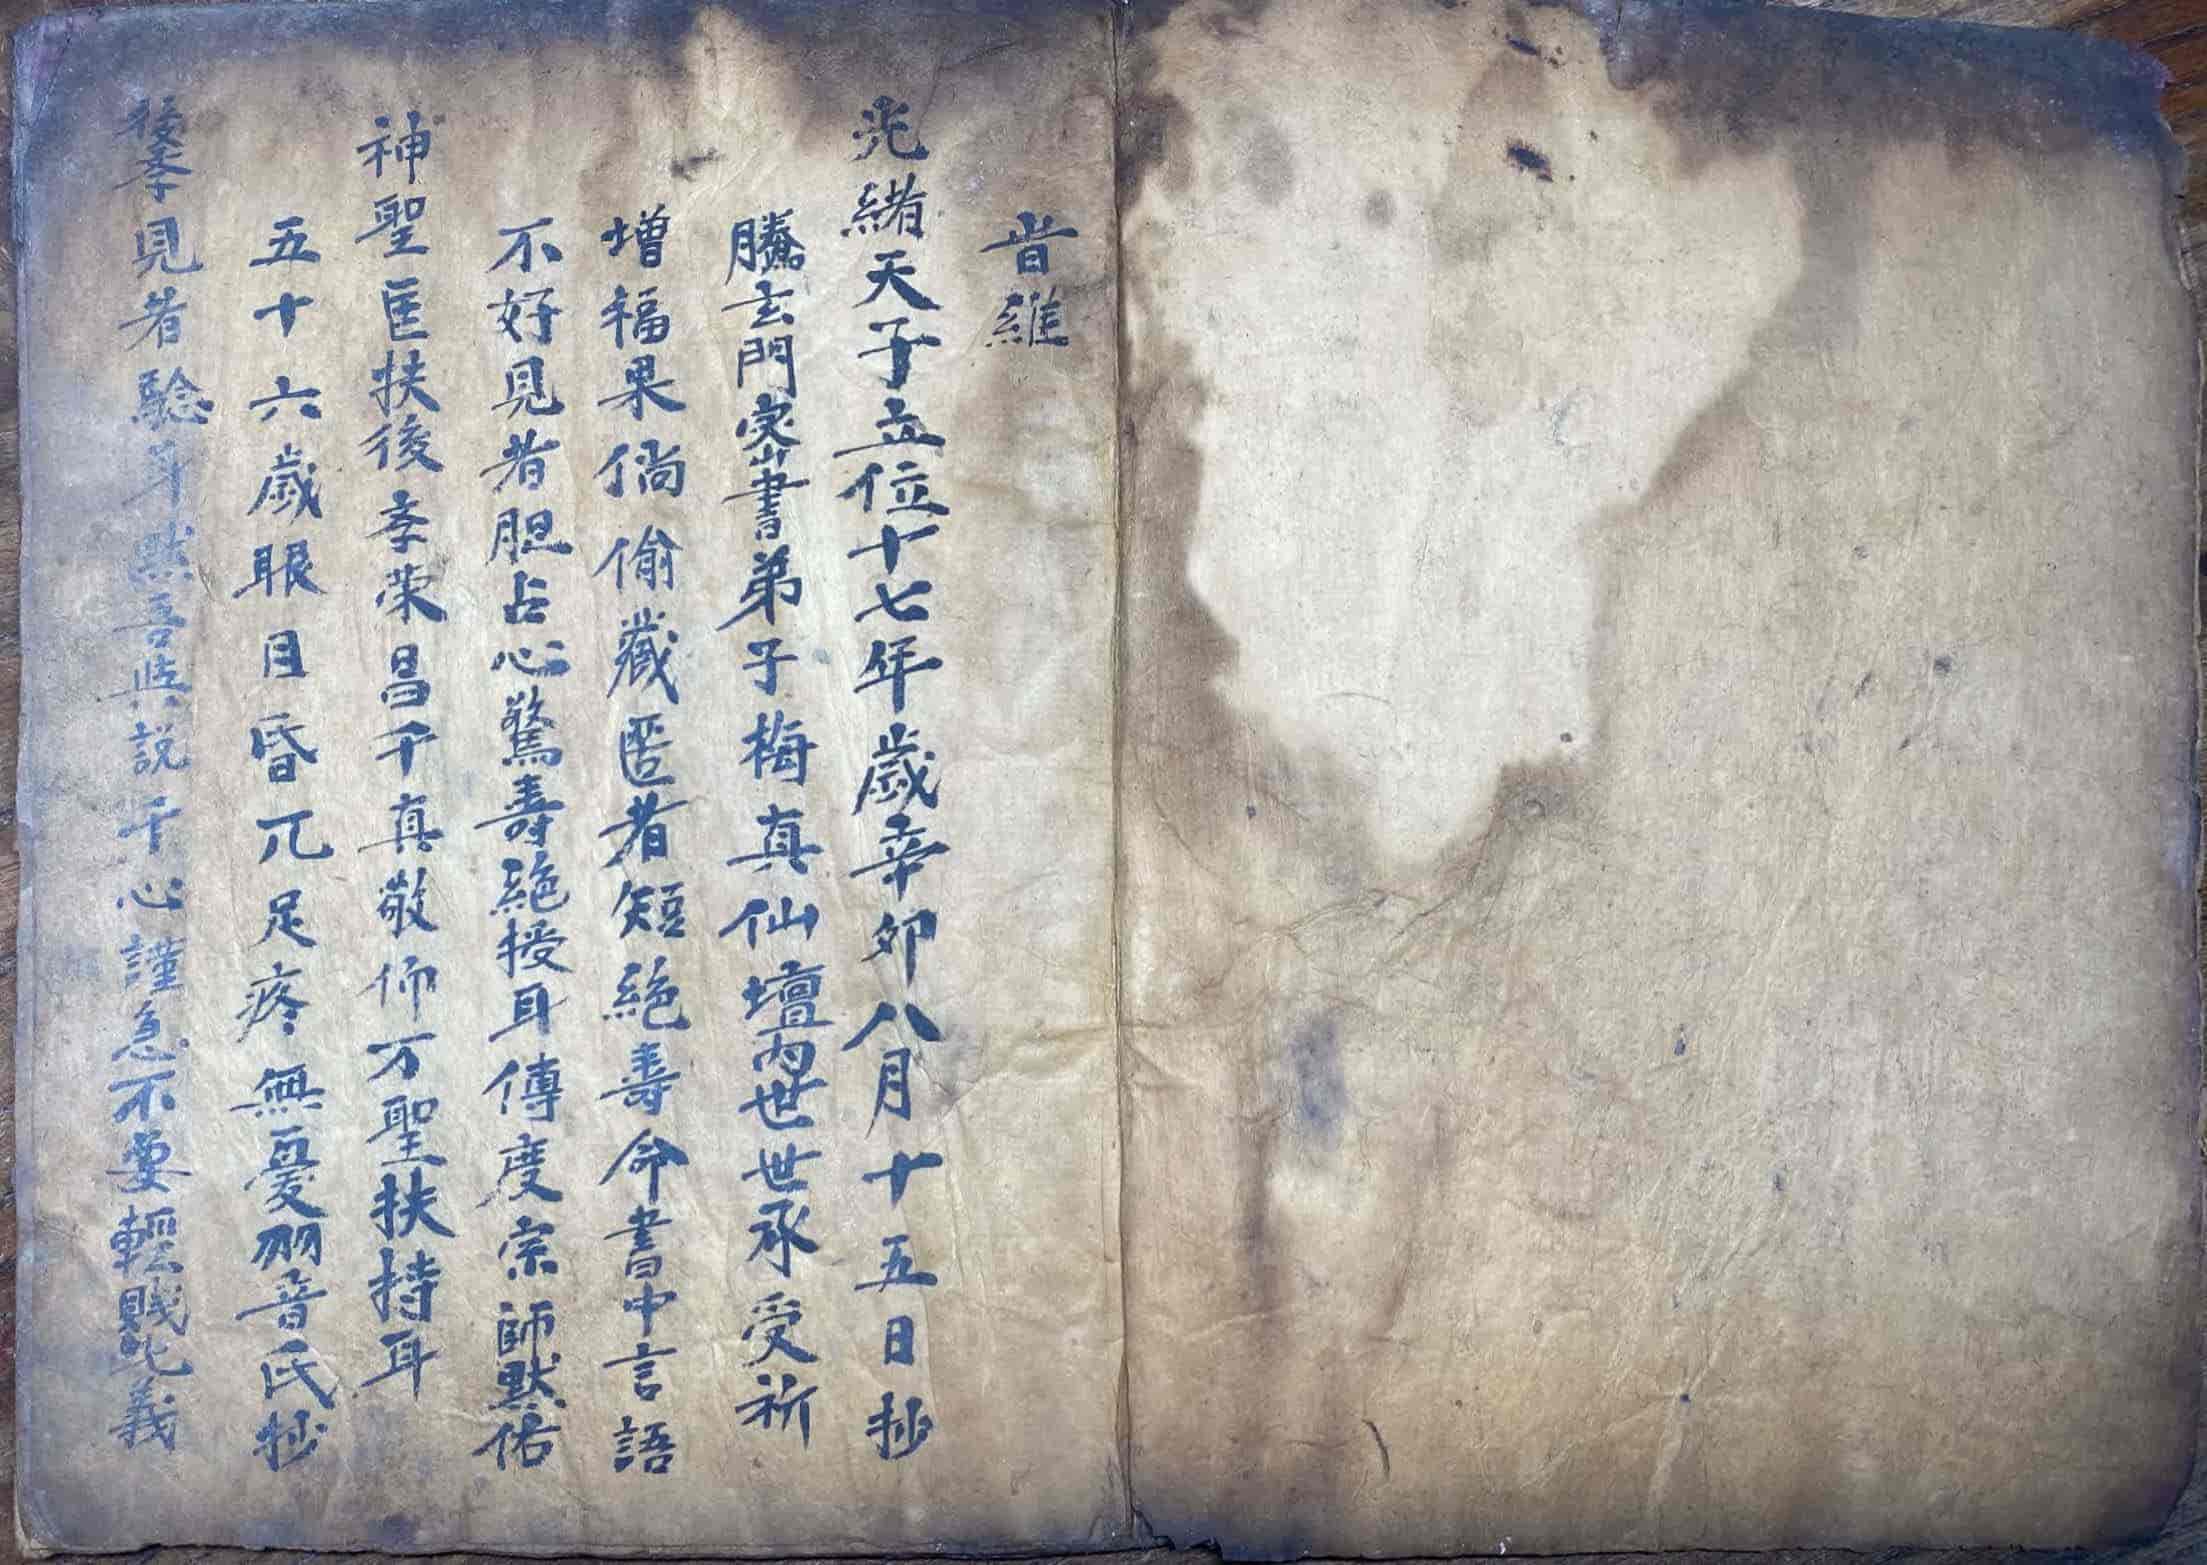 昔維
光緒天子立位十七年歲辛卯八月十五日抄
騰玄門密書弟子梅真仙壇內世世承受祈
增福果倘偷藏匿者短絕壽命書中言語
不好見者胆占心驚壽絕授耳傳度宗師默佑
神聖匡扶後孝荣昌千真敬仰万聖扶持耳
五十六歲眼目昏兀足疼無憂羽音氏抄
後孝見者驗 默吾與説千心謹急不要輕賤 義